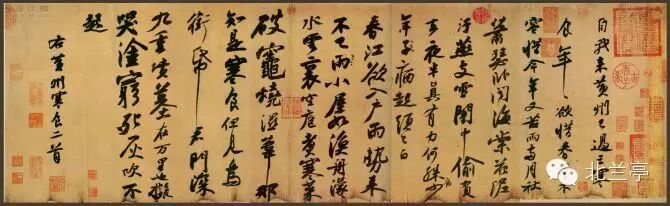 自我來黃州已過三寒
食年々欲惜春春去不
容惜今年又苦雨兩月秋
蕭瑟臥聞海棠花泥
汙燕支雪闇中偷負
去夜半真有力何殊少
年子病起頭已白
春江欲入戶雨勢來
不已雨小屋如漁舟濛々
水雲裏空庖煮寒菜
破竈燒濕葦那
知是寒食但見烏
銜帋君門深
九重墳墓在万里也擬
哭塗窮死灰吹不
起
右黃州寒食二首
北兰亭